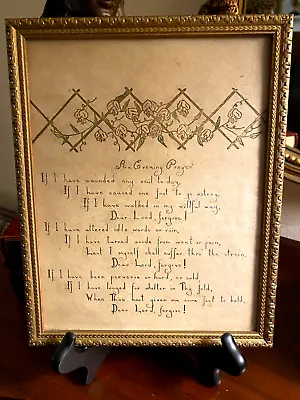 An Evening Prayer
If I have wounded any soul to-day,
If I have caused one foot to go astray,
If I have walked in my willful way,
Dear Lord, forgive!
If I have uttered idle words or vain,
If I have turned aside from want or pain,
Lest I myself shall suffer thro' the strain,
Dear Lord, forgive!
If I have been perverse or hard, or cold,
If I have longed for shelter in Thy fold,
When Thou hast given me some fort to hold,
Dear Lord, forgive!